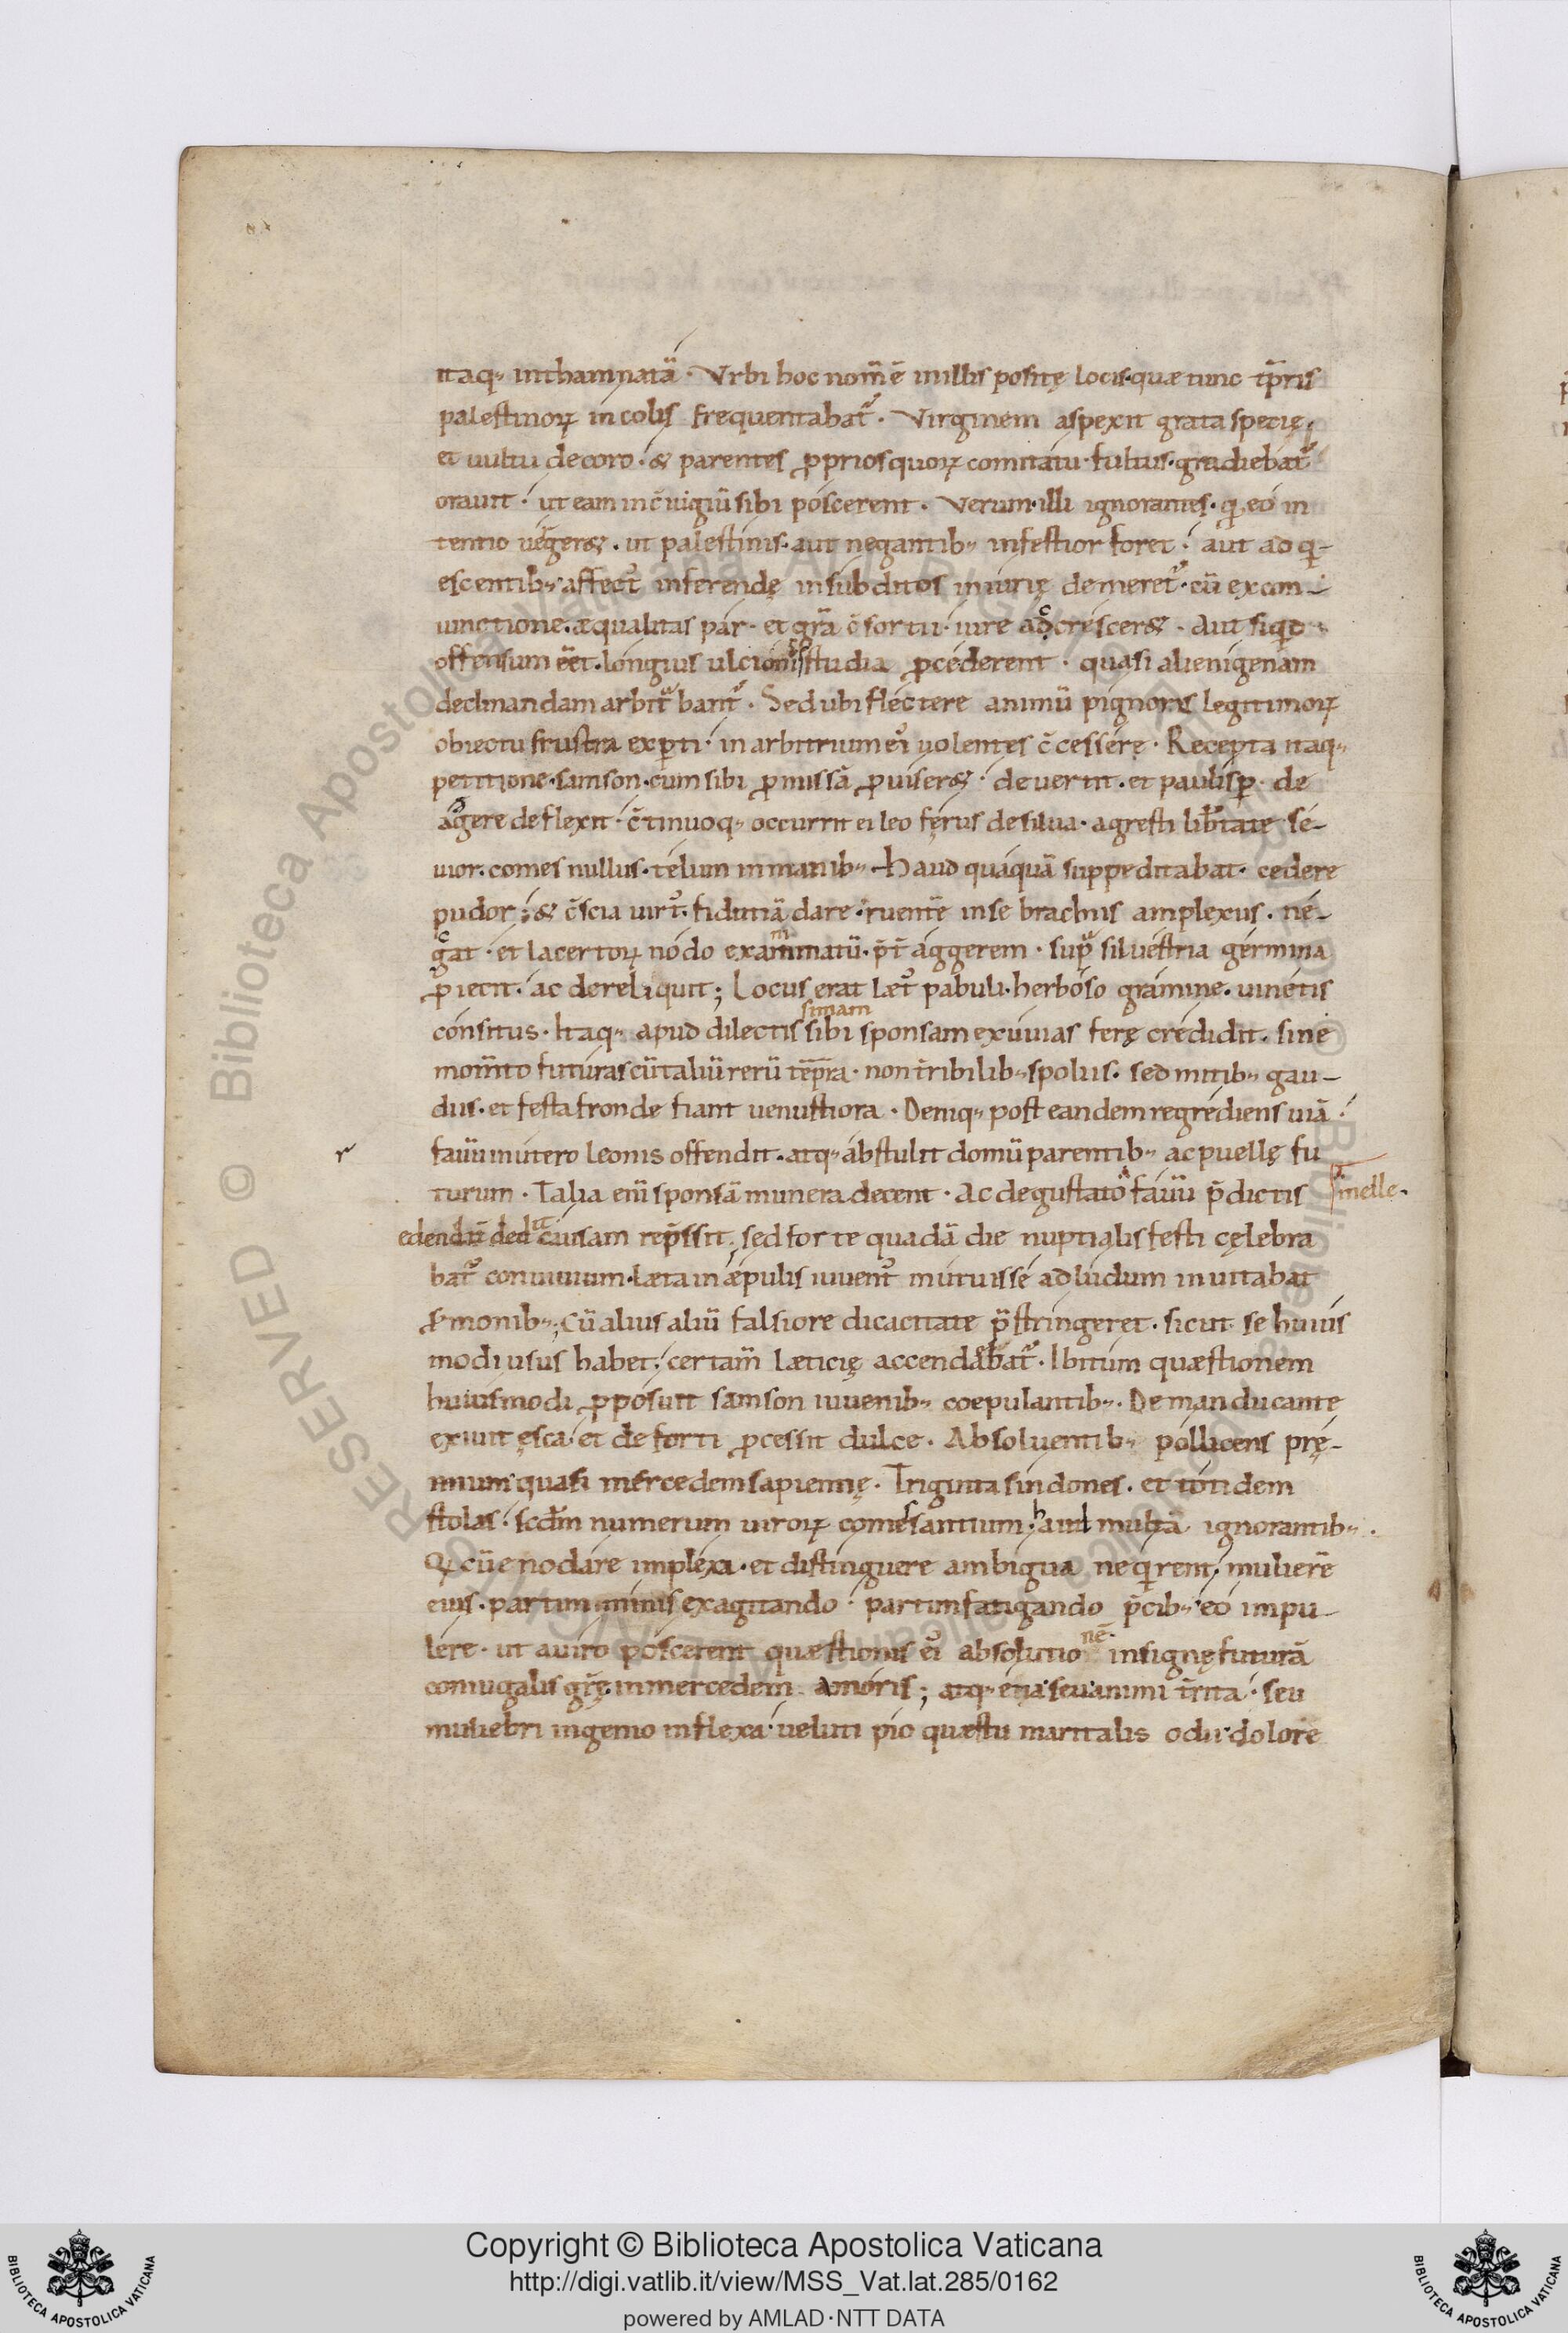 itaq· inthamnatā · Vrbi hoc nom̄ ē in illis positę locis · quæ tunc tp̄ris
palestinoꝝ incolis frequentabat᷑ · Virginem aspexit grata specię
et uultu decoro · & parentes ꝓprios quoꝝ comitatu fultus · gradiebat᷑
orauit · ut eam in c̄iugiū sibi poscerent · Verum illi ignorantes · qđ eo in
tentio uergeret · ut palestinis · aut negantib· infestior foret · aut ad qi-
escentib· affect᷑ inferendę in subditos iniurię demeret᷑ · cū ex con-
iunctione · æqualitas par · et gr̄a c̄sortii · iure adcresceret · Aut siquo
offensum eēt · longius ulcionis studia ꝓcederent · quasi alienigenam
declinandam arbitᵃbant᷑ · Sed ubi flectere animū pignoris legitimoꝝ
obiectu frustra exꝑti · in arbitrium ei᷑ uolentes c̄cessere · Recepta itaq·
petitione · samson · cum sibi ꝓmissā ꝓuiseret · deuertit · et paulisꝑ de
aggere deflexit · c̄tinuoq· occurrit ei leo ferus de silua · agresti lib̄tate sę-
uior · comes nullus · telum in manib· Haud quaquā suppeditabat · cedere
pudor · & c̄scia uirt᷑ · fidutiā dare · ruentē in se brachiis amplexus · ne-
cat · et lacertoꝝ nodo exanimatū · p̄t᷑ aggerem · supᵃ siluestria germina
ꝓiecit · ac dereliquit ; Locus erat læt᷑ pabuli · herboso gramine · uinetis
consitus · Itaq· apud dilectissimam sibi sponsam exuuias ferę credidit · sine
mom̄to futuras cū taliū rerū tēp̄ra · non t̄ribilib· spoliis · sed mitib· gau-
diis · et festa fronde fiant uenustiora · Deniq· post eandem regrediens uiā ·
r
fauū in utero leonis offendit · atq· abstulit domū parentib· ac puellę fu
turum · Talia eni᷑ sponsā munera decent · Ac degustato fauū p̄dictis melle ·
edendū ded causam rep̄ssit ; sed forte quadā die nuptialis festi cęlebra
bat᷑ conuiuium · læta in æpulis iuuent᷑ mutuis se ad ludum inuitabat
s̄monib· ; cū alius aliū falsiore dicacitate p̄stringeret · sicut se huius
modi usus habet · certam̄ læticię accendebat᷑ · Ibi tum quæstionem
huiusmodi ꝓposuit samson iuuenib· coepulantib· · De manducante
exiuit ęsca · et de forti ꝓcessit dulce · Absoluentib· pollicens prę-
mium quasi mercedem sapientię · Triginta sindones · et totidem
stolas · scđm numerum uiroꝝ comessantium · haud multā ignorantib· ·
Qi cū enodare implexa · et distinguere ambigua neqirent · mulierē
eius · partim minis exagitando · partim fatigando p̄cib· eo impu-
lere · ut a uiro poscerent quæstionis ei᷑ absolutionē · insigne futurā
coniugalis gr̄ę in mercedem amoris ; atq· etiā seu animi t̄rita · seu
muliebri ingenio inflexa · ueluti pio quæstu maritalis odii · dolore
Copyright © Biblioteca Apostolica Vaticana
http://digi.vatlib.it/view/MSS_Vat.lat.285/0162
powered by AMLAD·NTT DATA
BIBLIOTECA APOSTOLICA VATICANA
BIBLIOTECA APOSTOLICA VATICANA